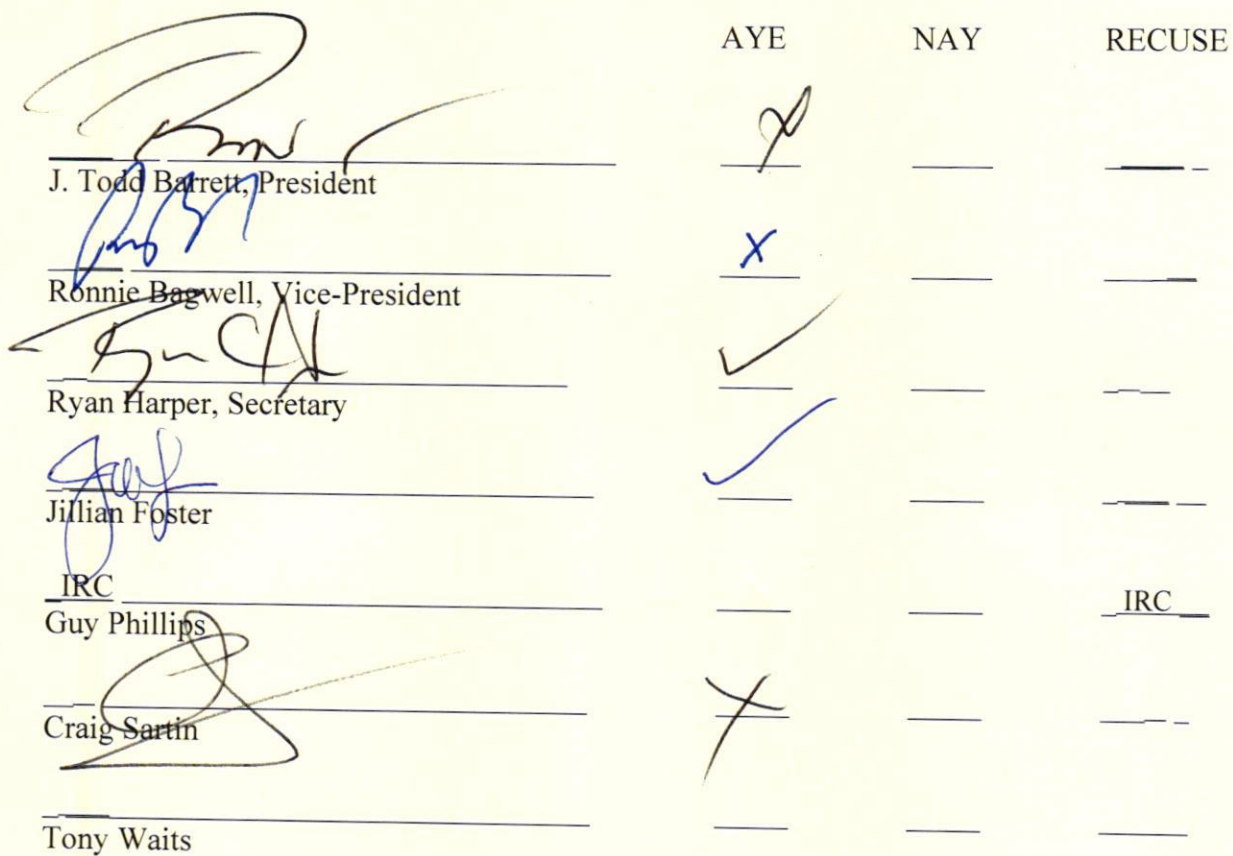 AYE NAY RECUSE
J. Todd Barrett, President
X
Ronnie Bagwell, Vice-President
Ryan Harper, Secretary
Jillian Foster
IRC IRC
Guy Phillips
X
Craig Sartin
Tony Waits